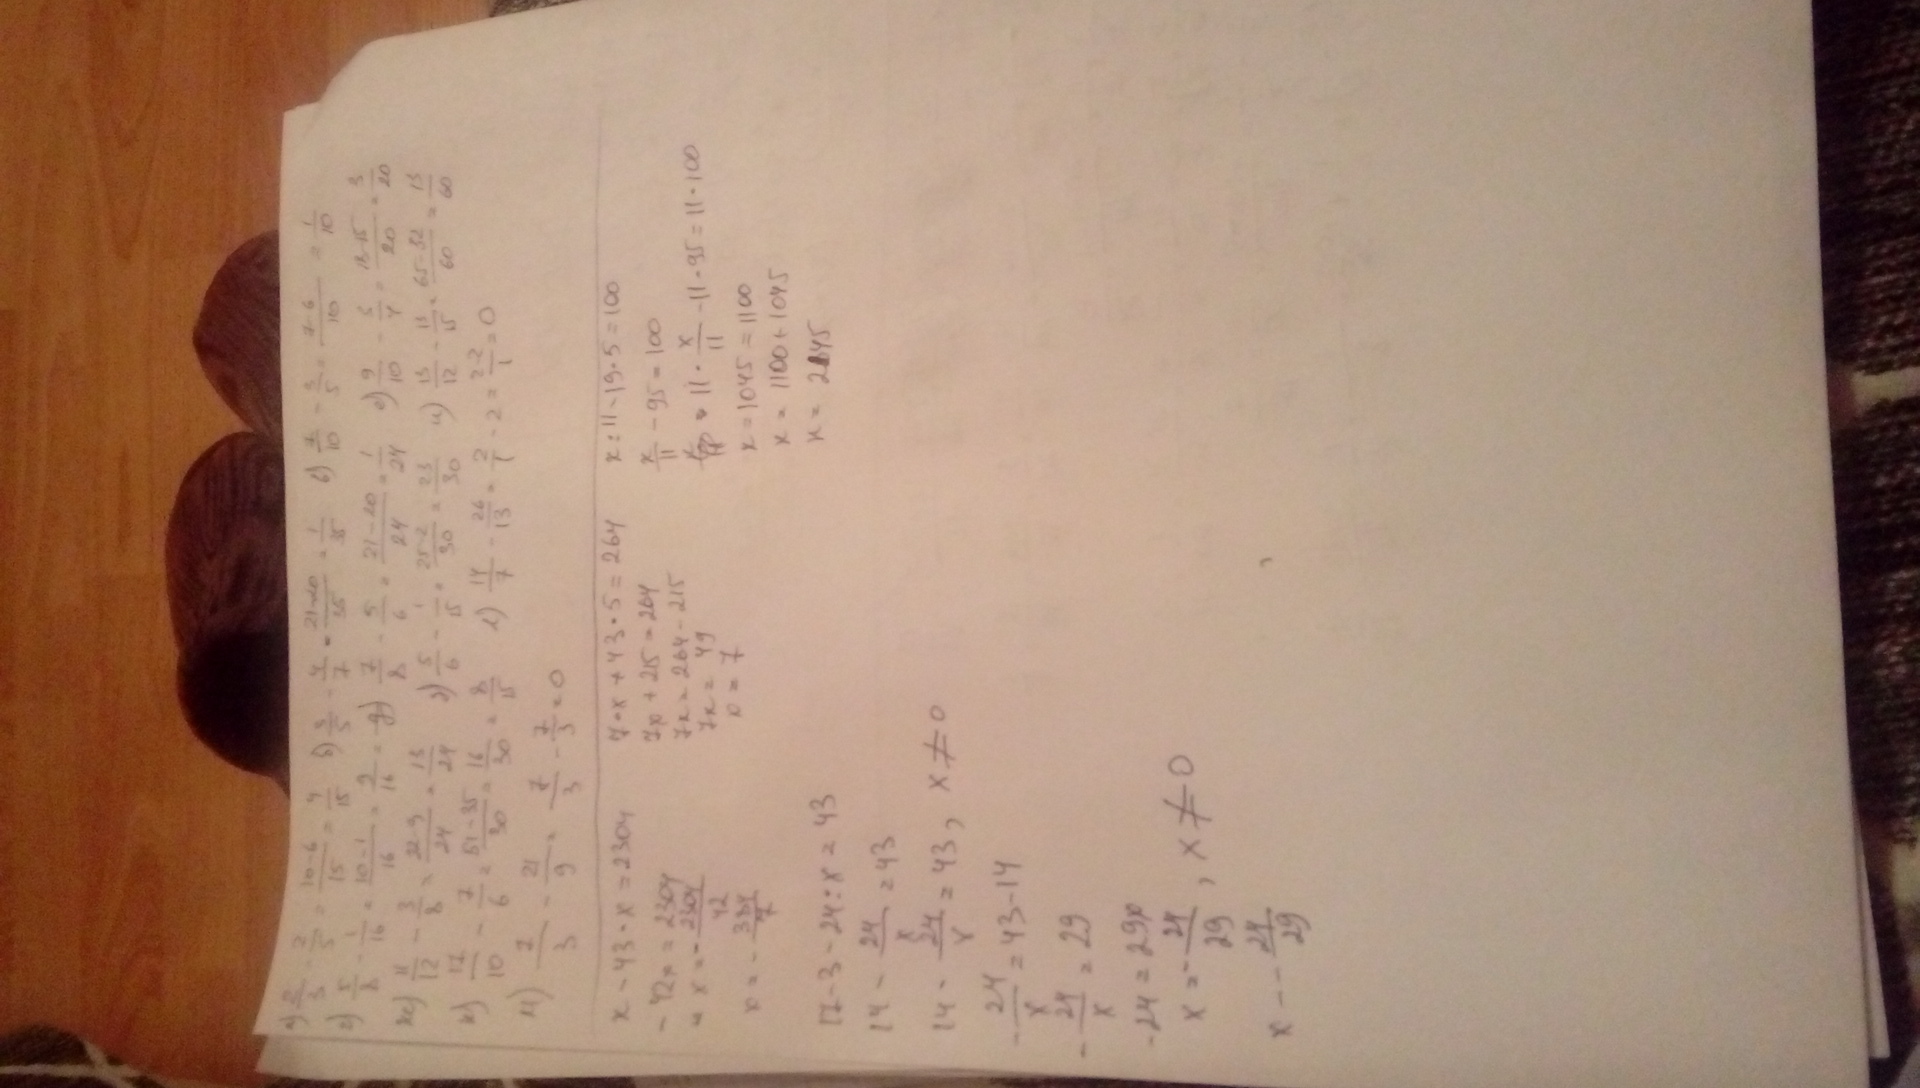 а) 2/3 - 2/5 = 10-6/15 = 4/15 б) 3/5 - 4/7 = 21-20/35 = 1/35 в) 7/10 - 3/5 = 7-6/10 = 1/10
г) 5/8 - 1/16 = 10-1/16 = 9/16 = д) 7/8 - 5/6 = 21-20/24 = 1/24 е) 9/10 - 3/4 = 18-15/20 = 3/20
ж) 11/12 - 3/8 = 22-9/24 = 13/24 з) 5/6 - 1/15 = 25-2/30 = 23/30 и) 13/12 - 13/15 = 65-52/60 = 13/60
к) 17/10 - 7/6 = 51-35/30 = 16/30 = 8/15 л) 14/7 - 26/13 = 2/1 - 2 = 2-2/1 = 0
м) 7/3 - 21/9 = 7/3 - 7/3 = 0
x - 43 · x = 2304
- 42x = 2304
x = - 2304/42
x = - 384/7
7 · x + 43 · 5 = 264
7x + 215 = 264
7x = 264 - 215
7x = 49
x = 7
x : 11 - 19 · 5 = 100
x/11 - 95 = 100
11 · x/11 - 11 · 95 = 11 · 100
x = 1045 = 1100
x = 1100 + 1045
x = 2145
17 - 3 - 24 : x = 43
14 - 24/x = 43
14 - 24/x = 43, x ≠ 0
- 24/x = 43 - 14
- 24/x = 29
-24 = 29x
x = - 24/29, x ≠ 0
x - - 24/29